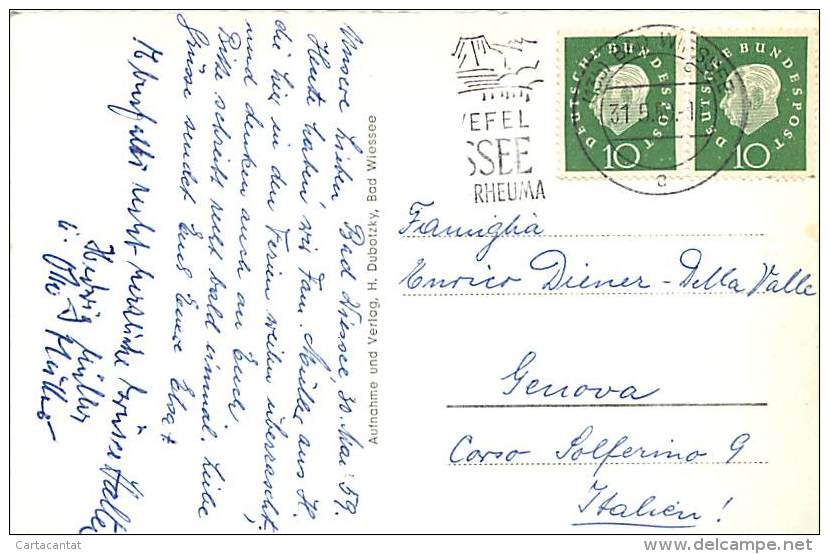 Unsere Lieben Bad Wiessee 30. Mai 59.
Heute haben wir Fam. Müller aus H.
die hier in den Ferien weilen überrascht,
und denken auch an Euch
Bitte schreibt recht bald einmal. Liebe
Grüsse sendet Euch Euere Else +
Ebenfalls recht herzliche Grüsse
Hedwig Müller
u. Otto Müller
Aufnahme und Verlag, H. Dubotzky, Bad Wiessee
EFEL
SSEE
RHEUMA
BAD WIESSEE
31.5.
c
DEUTSCHE BUNDESPOST
10
DEUTSCHE BUNDESPOST
10
Famiglia
Enrico Diener - Della Valle
Genova
Corso Solferino 9
Italien!
Cartacantat
delcampe.net